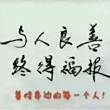 与人良善
终得福报
善待身边的每一个人！